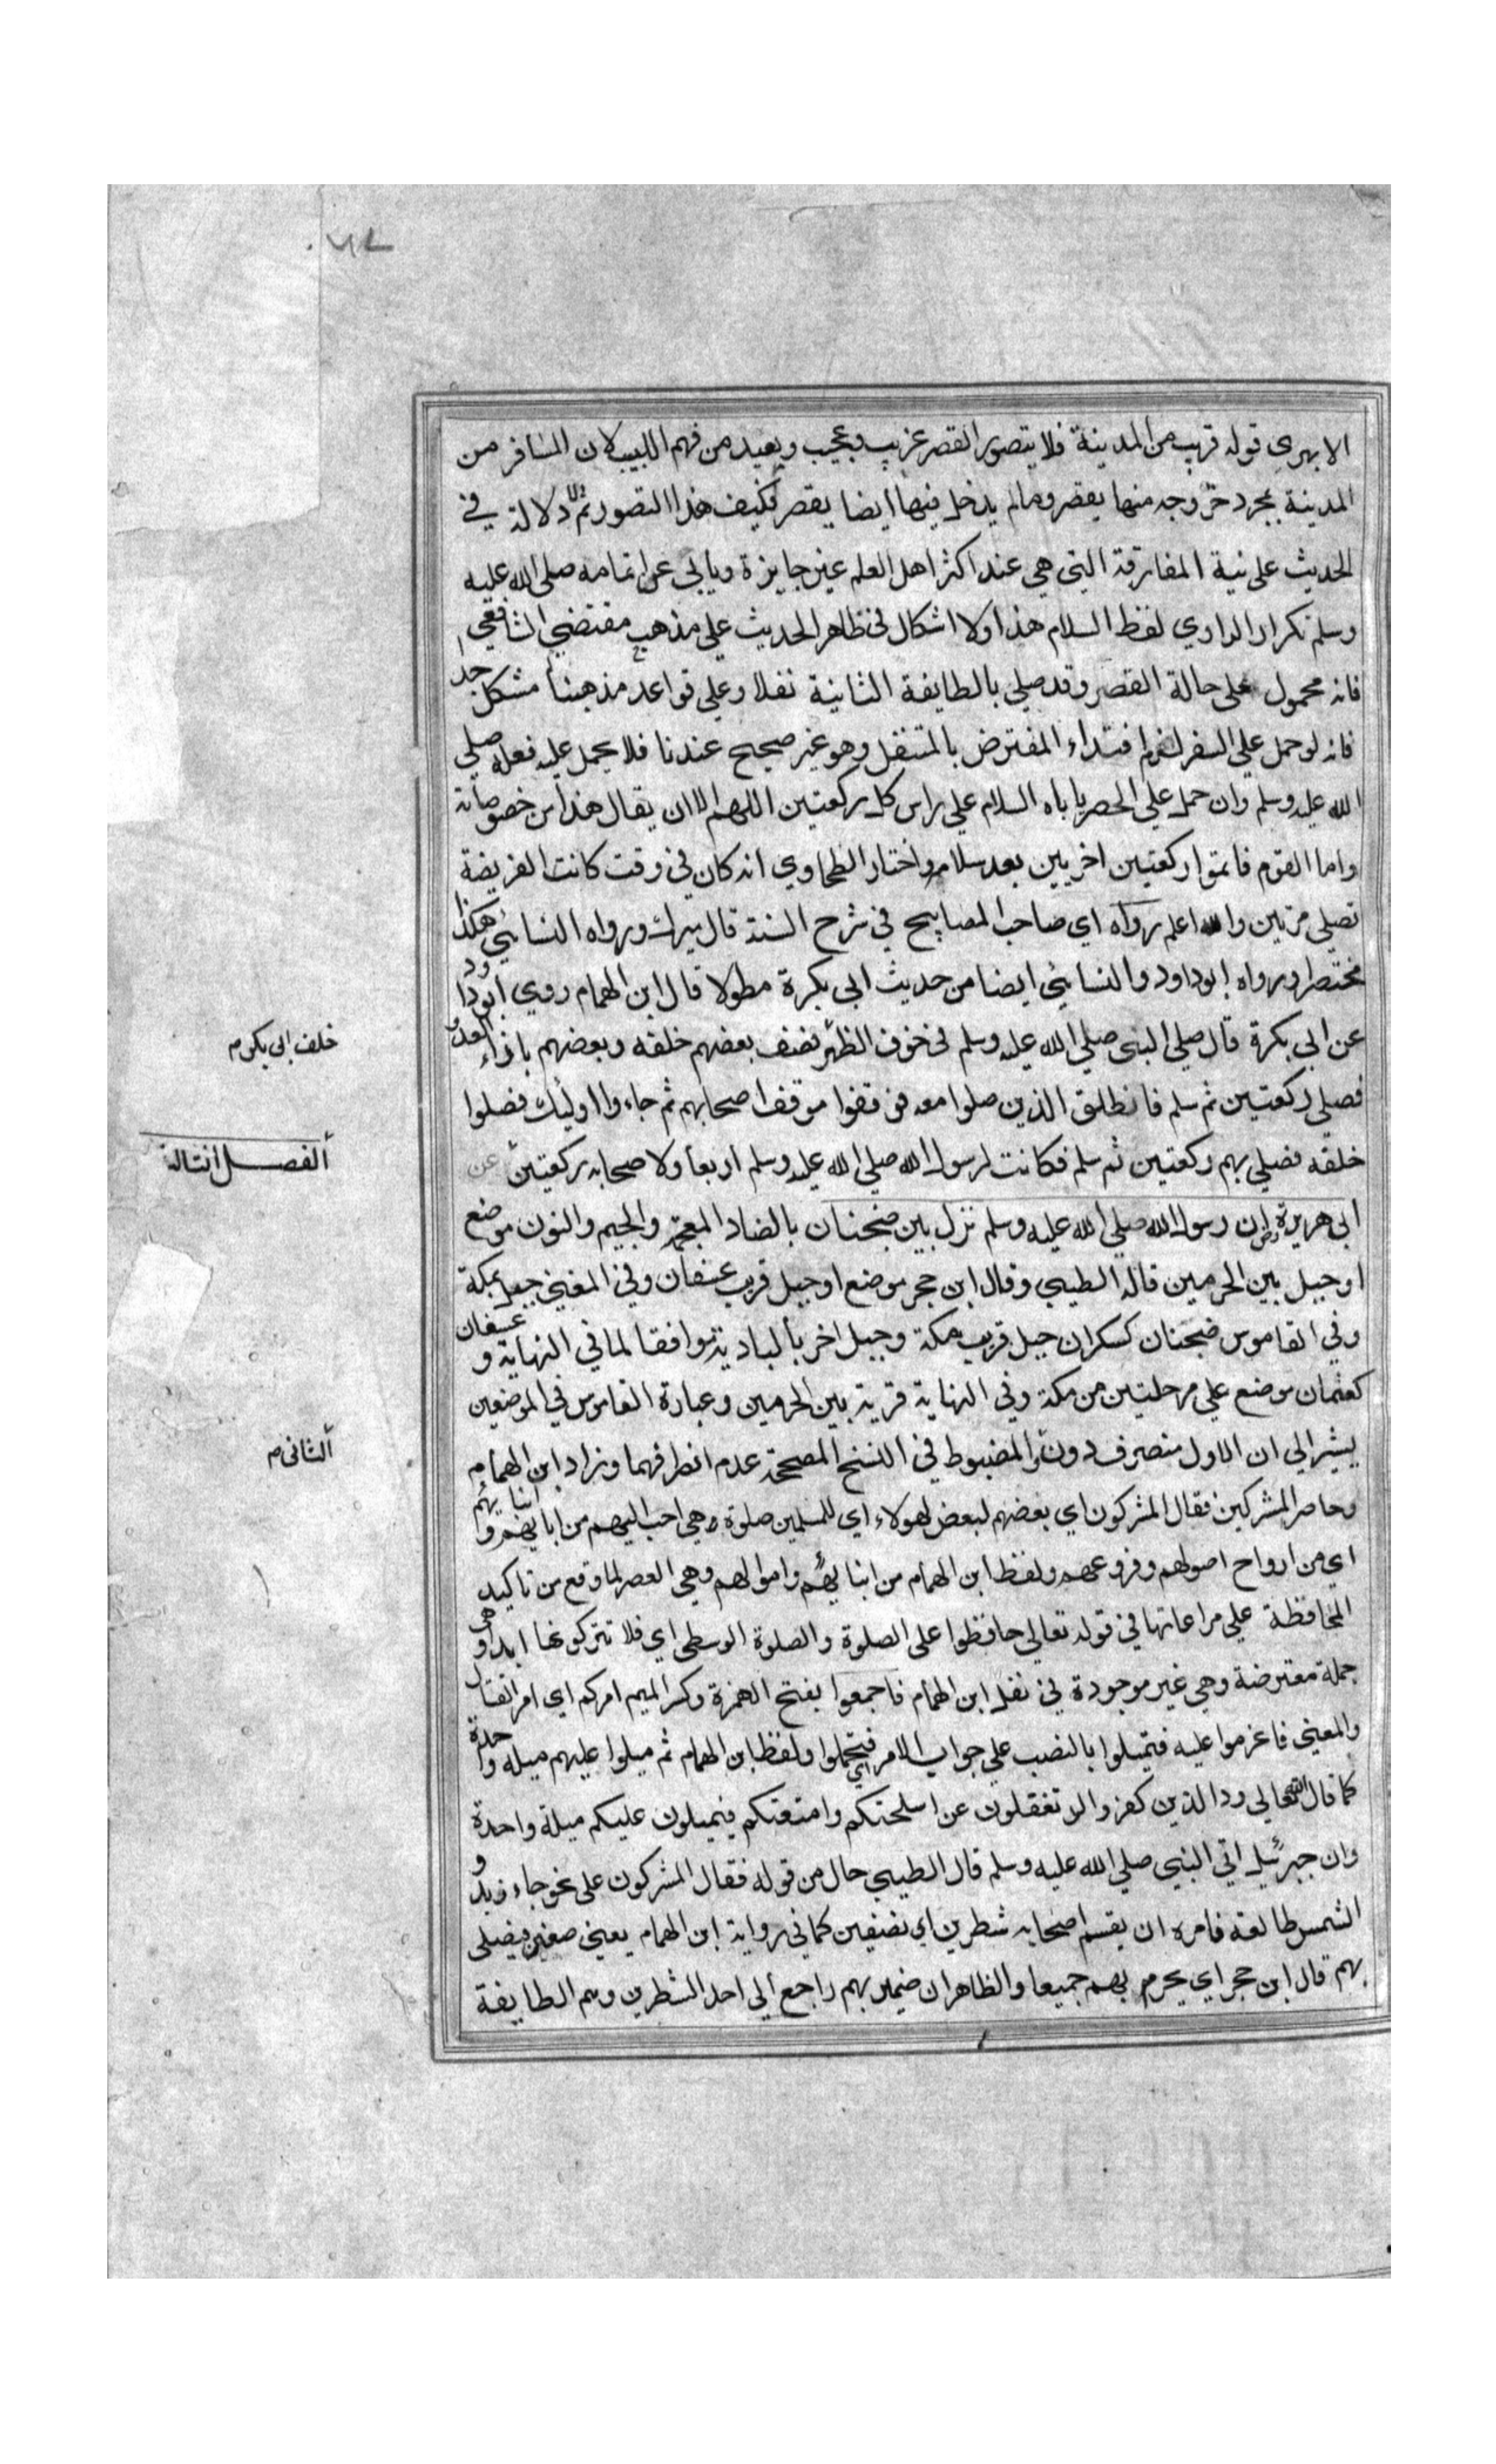 الابهري قوله قريب من المدينة فلا يتصور القصر غريب وعجيب وبعيد من فهم اللبيب لان المسافر من
المدينة بمجرد خروجه منها يقصر وما لم يدخل فيها ايضا يقصر فكيف هذا التصور ثم لا دلالة في
الحديث على نية المفارقة التي هي عند اكثر اهل العلم غير جايزة ويابى عن اتمامه صلى الله عليه
وسلم تكرار الراوي لفظ السلام هذا ولا اشكال في ظاهر الحديث على مذهب مقتضي الشافعي
فانه محمول على حالة القصر وقد صلى بالطايفة الثانية نفلا وعلى قواعد مذهبنا مشكل جدا
فانه لو حمل على السفر لزم اقتداء المفترض بالمتنفل وهو غير صحيح عندنا فلا يحمل عليه فعله صلى
الله عليه وسلم وان حمل على الحضر ياباه السلام على راس كل ركعتين اللهم الا ان يقال هذا من خصوصياته
واما القوم فاتموا ركعتين اخريين بعد سلامه واختار الطحاوي انه كان في وقت كانت الفريضة
تصلى مرتين والله اعلم رواه اي صاحب المصابيح في شرح السنة قال ميرك ورواه النسايي هكذا
مختصرا ورواه ابو داود والنسايي ايضا من حديث ابي بكرة مطولا قال ابن الهمام روى ابو داود
عن ابي بكرة قال صلى النبي صلى الله عليه وسلم في خوف الظهر فصف بعضهم خلفه وبعضهم بازاء العدو
فصلى ركعتين ثم سلم فانطلق الذين صلوا معه فوقفوا موقف اصحابهم ثم جاءوا اوليك فصلوا
خلفه فصلى بهم ركعتين ثم سلم فكانت لرسول الله صلى الله عليه وسلم اربعا ولاصحابه ركعتين عن
ابي هريرة رض ان رسول الله صلى الله عليه وسلم نزل بين ضجنان بالضاد المعجمة والجيم والنون موضع
او جبل بين الحرمين قاله الطيبي وقال ابن حجر موضع او جبل قريب عسفان وفي المغني جبل بمكة
وفي القاموس ضجنان كسكران جبل قريب مكة وجبل اخر بالبادية موافقا لما في النهاية وعسفان
كعثمان موضع على مرحلتين من مكة وفي النهاية قرية بين الحرمين وعبارة القاموس في الموضعين
يشير الى ان الاول منصرف دون والمضبوط في النسخ المصححة عدم انصرافهما وزاد ابن الهمام
وحاصر المشركين فقال المشركون اي بعضهم لبعض لهولاء اي للمسلمين صلوة هي احب اليهم من ابايهم وابنايهم
اي من ارواح اصولهم وفروعهم ولفظ ابن الهمام من ابنايهم واموالهم وهي العصر لما وقع من تاكيد
المحافظة على مراعاتها في قوله تعالى حافظوا على الصلوة والصلوة الوسطى اي فلا تتركونها ابدا وهي
جملة معترضة وهي غير موجودة في نقل ابن الهمام فاجمعوا بفتح الهمزة وكسر الميم امركم اي امر القتال
والمعنى فاعزموا عليه فتميلوا بالنصب على جواب الامر اي فتحملوا ولفظ ابن الهمام ثم ميلوا عليهم ميلة واحدة
كما قال الله تعالى ود الذين كفروا لو تغفلون عن اسلحتكم وامتعتكم فيميلون عليكم ميلة واحدة
وان جبرئيل اتى النبي صلى الله عليه وسلم قال الطيبي حال من قوله فقال المشركون على نحو جاء زيد و
الشمس طالعة فامره ان يقسم اصحابه شطرين اي نصفين كما في رواية ابن الهمام يعني صفين فيصلى
بهم قال ابن حجر اي يحرم بهم جميعا والظاهر ان ضمير بهم راجع الى احد الشطرين وهم الطايفة
خلف ابي بكر م
الفصل الثالث
الثاني م